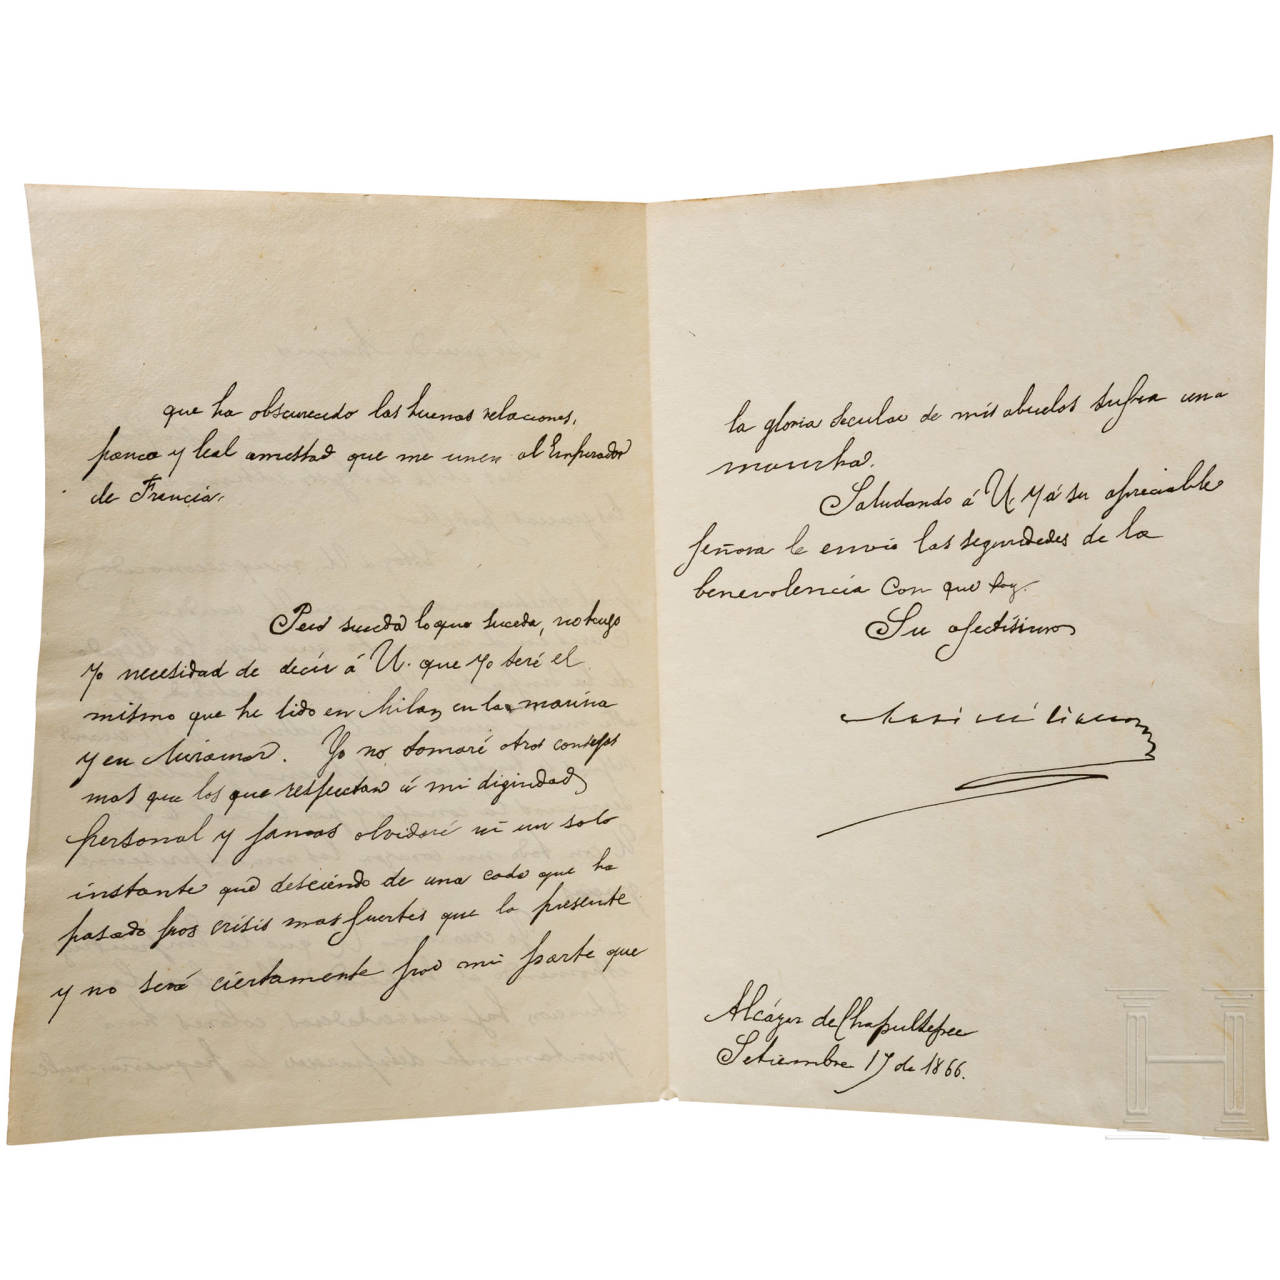 que ha obscurecido las buenas relaciones,
franca y leal amistad que me unen al Emperador
de Francia.
Pero suceda lo que suceda, no tengo
yo necesidad de decir á U. que yo seré el
mismo que he sido en Milan, en la marina
y en Miramar. Yo no tomaré otros consejos
mas que los que respectan á mi dignidad
personal y jamas olvidaré ni un solo
instante que desciendo de una casa que ha
pasado por crisis mas fuertes que la presente
y no será ciertamente por mi parte que
la gloria secular de mis abuelos sufra una
mancha.
Saludando á U. y á su apreciable
Señora le envio las seguridades de la
benevolencia con que soy.
Su afectisimo
Maximiliano
Alcázar de Chapultepec
Setiembre 17 de 1866.